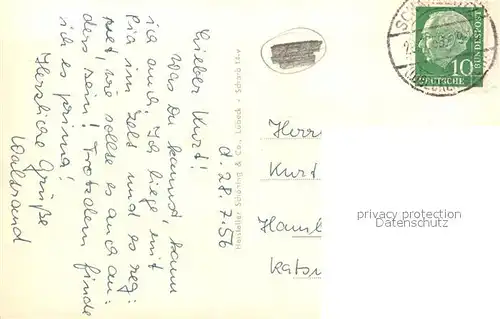 d. 28.7.56
Lieber Kurt!
Was Du kannst, kann
ich auch. Ich liege mit
Pia im Zelt und es reg=
net, wie sollte es auch an=
ders sein! Trotzdem finde
ich es prima!
Herzliche Grüße
Waltraud
Hersteller Schöning & Co., Lübeck
10
DEUTSCHE
BUNDESPOST
Herr
Kurt
privacy protection
Datenschutz